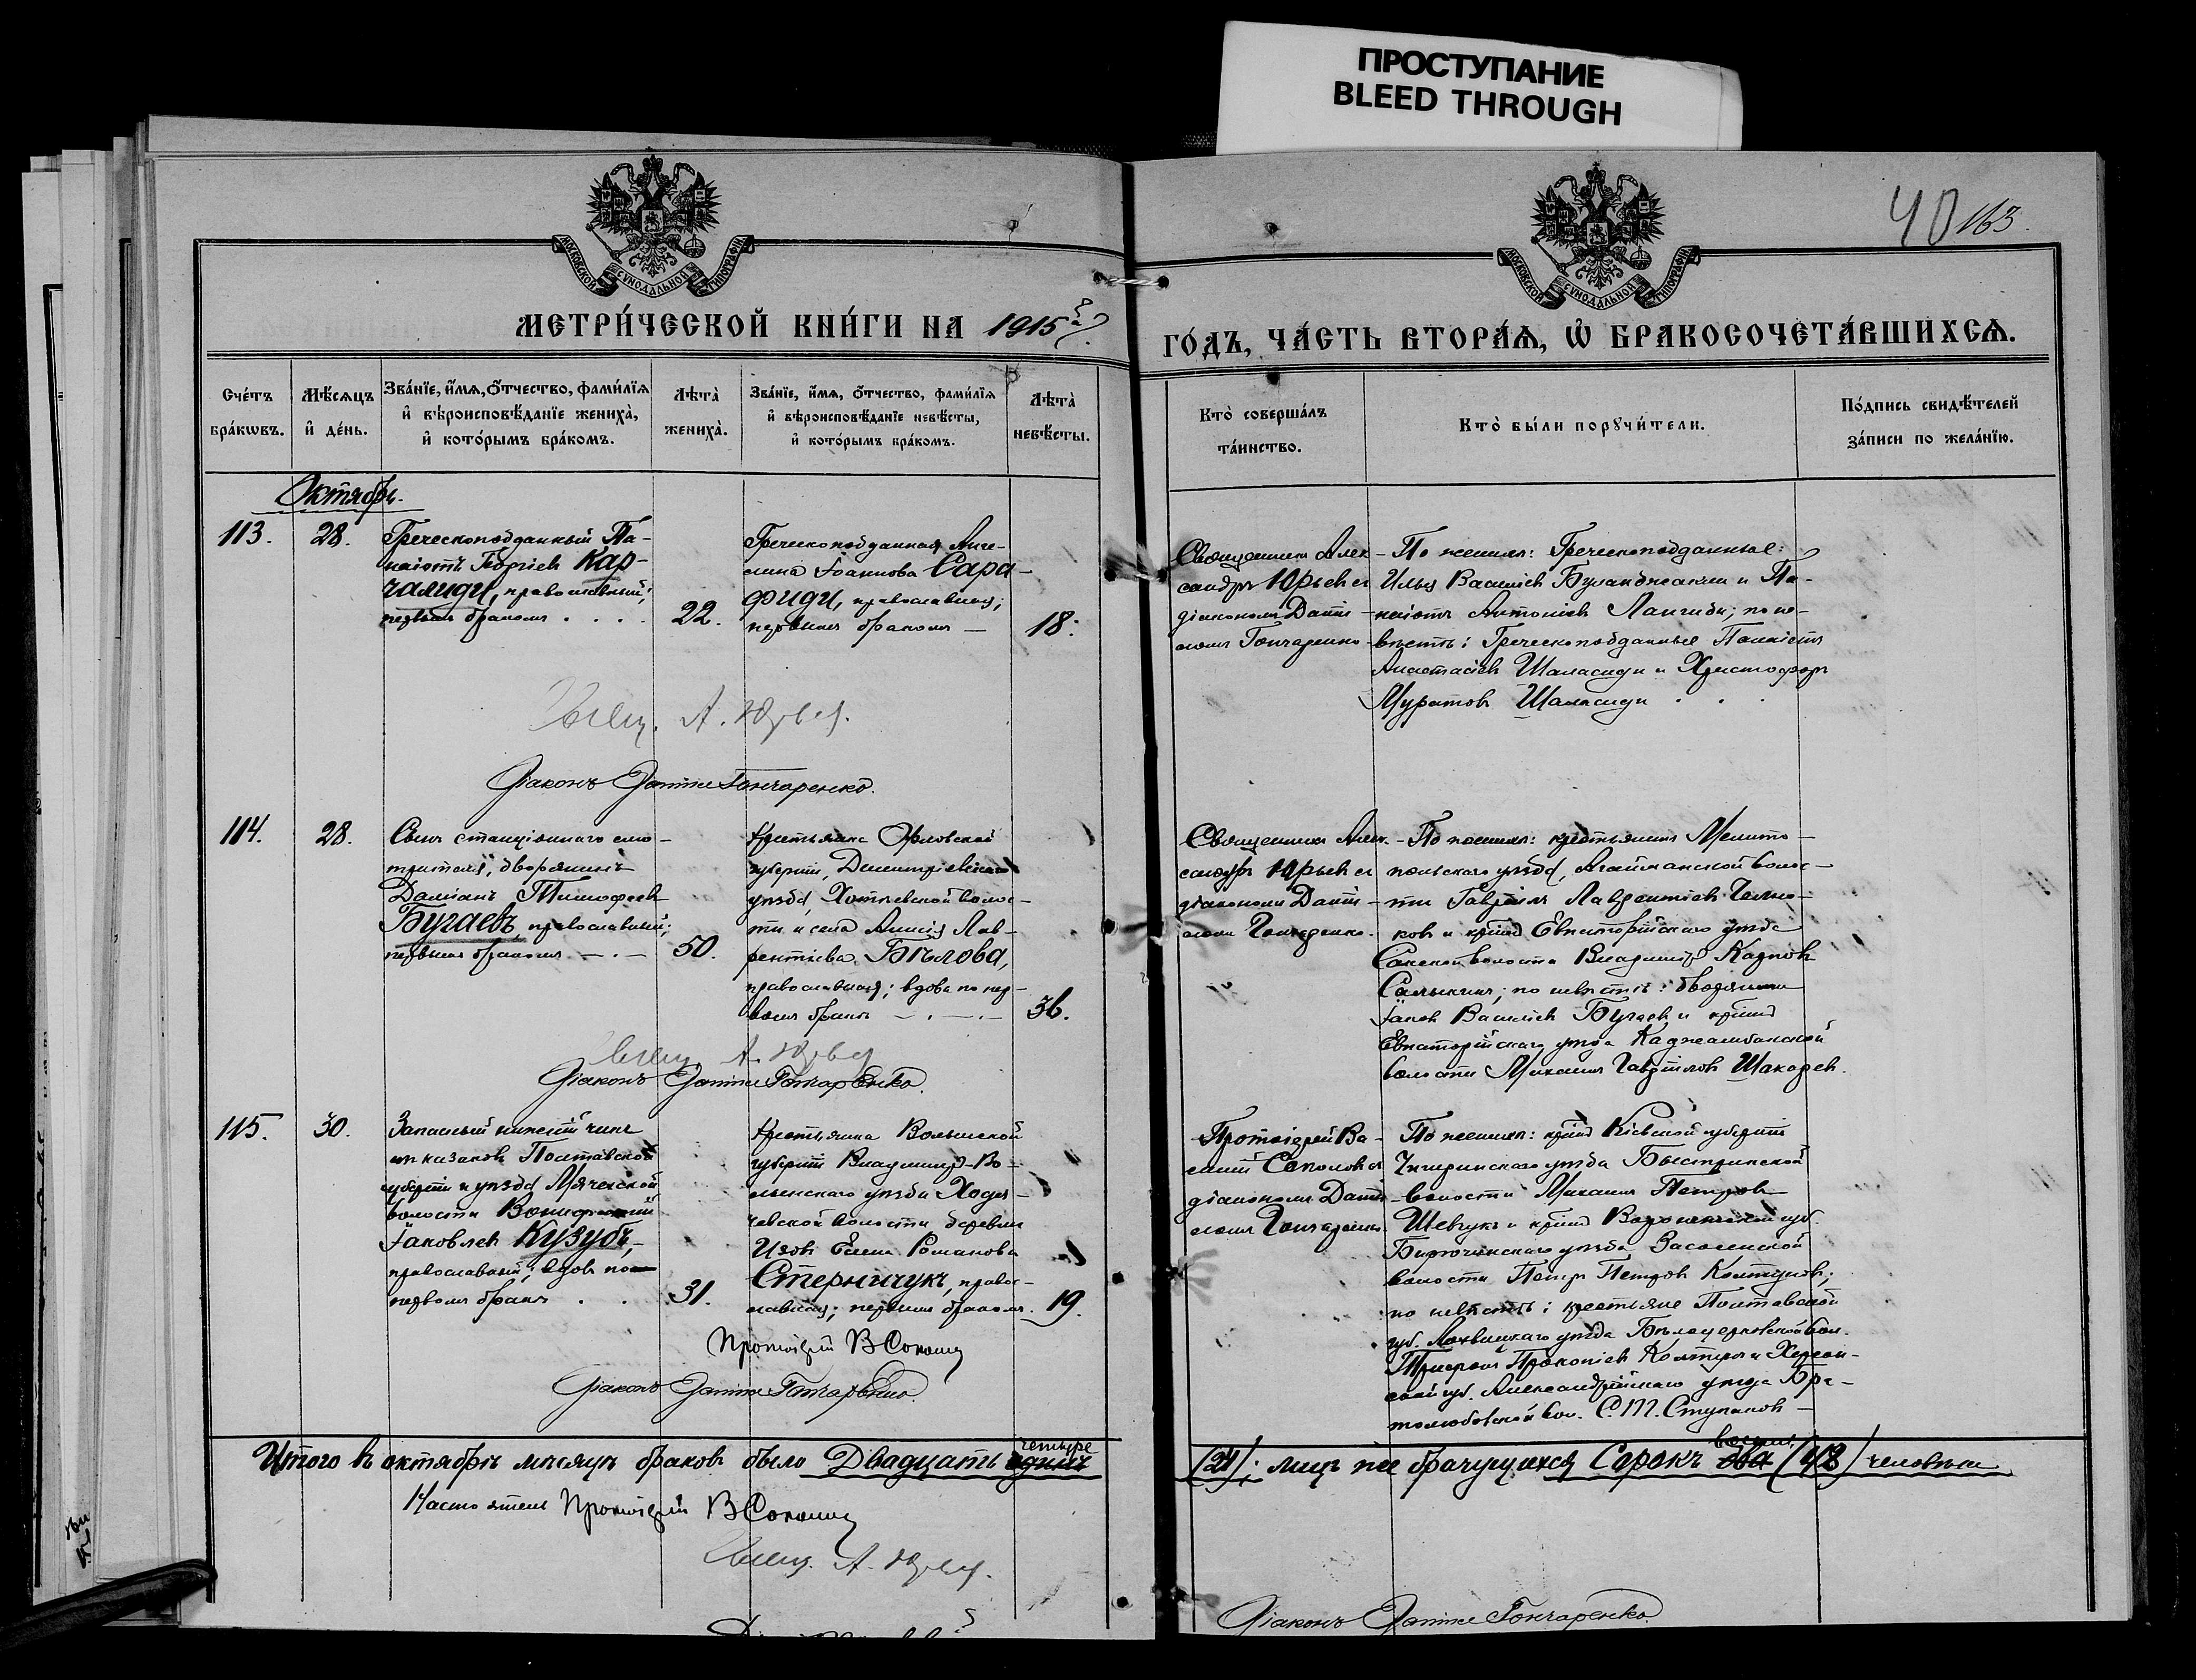 ПРОСТУПАНИЕ
BLEED THROUGH
МОСКОВСКОЙ СУНОДАЛЬНОЙ ТИПОГРАФІИ
МОСКОВСКОЙ СУНОДАЛЬНОЙ ТИПОГРАФІИ
40 163.
МЕТРИ́ЧЕСКОЙ КНИ́ГИ НА 1915 й
ГО́ДЪ, ЧА́СТЬ ВТОРА́Я, Ѽ БРАКОСОЧЕТА́ВШИХСЯ.
Сче́тъ бра́кѡвъ.
Мѣ́сяцъ и҆ де́нь.
Зва́нїе, и҆́мя, ѻ҆́тчество, фами́лїя
и҆ вѣроисповѣ́данїе жениха̀,
и҆ кото́рымъ бра́комъ.
Лѣта̀ жениха̀.
Зва́нїе, и҆́мя, ѻ҆́тчество, фами́лїя
и҆ вѣроисповѣ́данїе невѣ́сты,
и҆ кото́рымъ бра́комъ.
Лѣта̀ невѣ́сты.
Кто̀ соверша́лъ
та́инство.
Кто̀ бы́ли порꙋчи́тели.
По́дпись свидѣ́телей
за́писи по жела́нїю.
Октябрь.
113.
28.
Греческоподданный Па-
наіотъ Георгіевъ Кар-
чалиди, православный;
первымъ бракомъ . . . .
22.
Греческоподданная Анге-
лина Іоаннова Сара-
фиди, православная;
первымъ бракомъ —
18.
Священникъ Алек-
сандръ Юрьевъ съ
діакономъ Даніи-
ломъ Гончаренко
По женихѣ: Греческоподданные:
Илья Василіевъ и Па-
наіотъ Антоніевъ; по не-
вѣстѣ: Греческоподданные Панаіотъ
Анастасіевъ Шаласиди и Христофоръ
Муратовъ Шаласиди . .
Свящ. А. Юрьев.
Діаконъ Даніилъ Гончаренко.
114.
28.
Сынъ станціоннаго смо-
трителя, дворянинъ
Даміанъ Тимофеевъ
Бугаевъ, православный;
первымъ бракомъ — . —
50.
Крестьянка Орловской
губерніи, Димитріевскаго
уѣзда, Хотѣевской волос-
ти и села Анисія Лав-
рентіева Бѣлова,
православная; вдова по пер-
вомъ бракѣ — . — . —
36.
Священникъ Алек-
сандръ Юрьевъ съ
діакономъ Даніи-
ломъ Гончаренко.
По женихѣ: крестьянинъ Мелито-
польскаго уѣзда, Агайманской волос-
ти Гавріилъ Лаврентіевъ
ковъ и крнинъ Евпаторійскаго уѣзда
Сакской волости Владиміръ Карповъ
; по невѣстѣ: дворянинъ
Іаковъ Василіевъ Бугаевъ и крнинъ
Евпаторійскаго уѣзда
волости Михаилъ Гавріиловъ Шакоревъ.
Свящ. А. Юрьев
Діаконъ Даніилъ Гончаренко.
115.
30.
Запасный нижній чинъ
изъ казаковъ Полтавской
губерніи и уѣзда Мачехской
волости
Іаковлевъ Кузубъ,
православный; вдовъ по
первомъ бракѣ . . .
31.
Крестьянка Волынской
губерніи Владиміръ-Во-
лынскаго уѣзда
волости деревни
Изовъ Елена Романова
Стерничукъ, правос-
лавная; первымъ бракомъ.
19.
Протоіерей Ва-
силій Соколовъ съ
діакономъ Дании-
ломъ Гончаренко.
По женихѣ: крнинъ Кіевской губерніи
Чигиринскаго уѣзда
волости Михаилъ Петровъ
Шевчукъ и крнинъ Воронежской губ.
Бирюченскаго уѣзда Засосенской
волости Петръ Петровъ;
по невѣстѣ: крестьяне Полтавской
губ. Лохвицкаго уѣзда Бѣлоцерковской вол.
Трифонъ Прокопіевъ и Херсон-
ской губ. Александрійскаго уѣзда Бра-
толюбовской вол. С. Т. Ступаковъ —
Протоіерей В Соколовъ
Діаконъ Даніилъ Гончаренко.
Итого въ октябрѣ мѣсяцѣ браковъ было Двадцать одинъ четыре
(24); лицъ же брачущихся Сорокъ два восемь (48) человѣкъ
Настоятель Протоіерей В Соколовъ
Свящ. А. Юрьев.
Діаконъ Даніилъ Гончаренко.